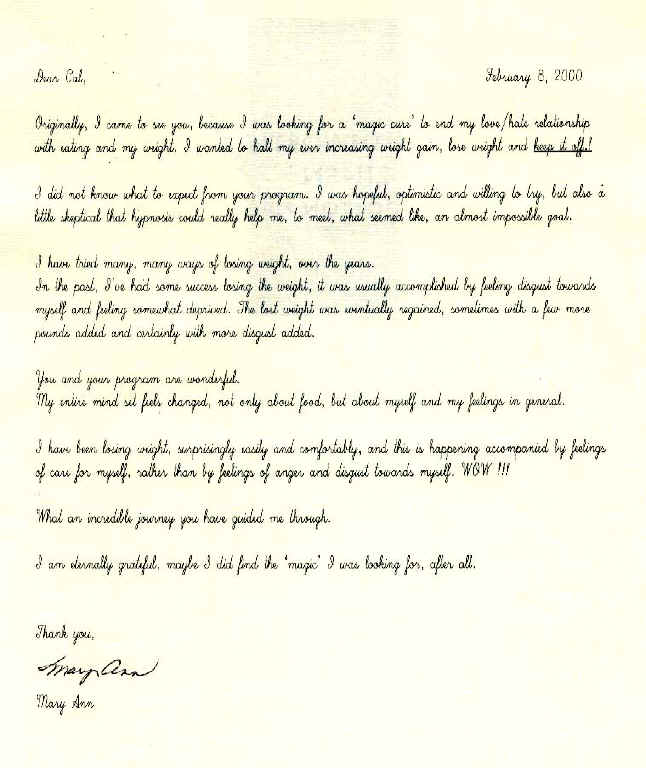 Dear Cal,
February 8, 2000
Originally, I came to see you, because I was looking for a 'magic cure' to end my love/hate relationship
with eating and my weight. I wanted to halt my ever increasing weight gain, lose weight and keep it off!
I did not know what to expect from your program. I was hopeful, optimistic and willing to try, but also a
little skeptical that hypnosis could really help me, to meet, what seemed like, an almost impossible goal.
I have tried many, many ways of losing weight, over the years.
In the past, I've had some success losing the weight, it was usually accomplished by feeling disgust towards
myself and feeling somewhat deprived. The lost weight was eventually regained, sometimes with a few more
pounds added and certainly with more disgust added.
You and your program are wonderful.
My entire mind set feels changed, not only about food, but about myself and my feelings in general.
I have been losing weight, surprisingly easily and comfortably, and this is happening accompanied by feelings
of care for myself, rather than by feelings of anger and disgust towards myself. WOW !!!
What an incredible journey you have guided me through.
I am eternally grateful, maybe I did find the 'magic' I was looking for, after all.
Thank you,
Mary Ann
Mary Ann